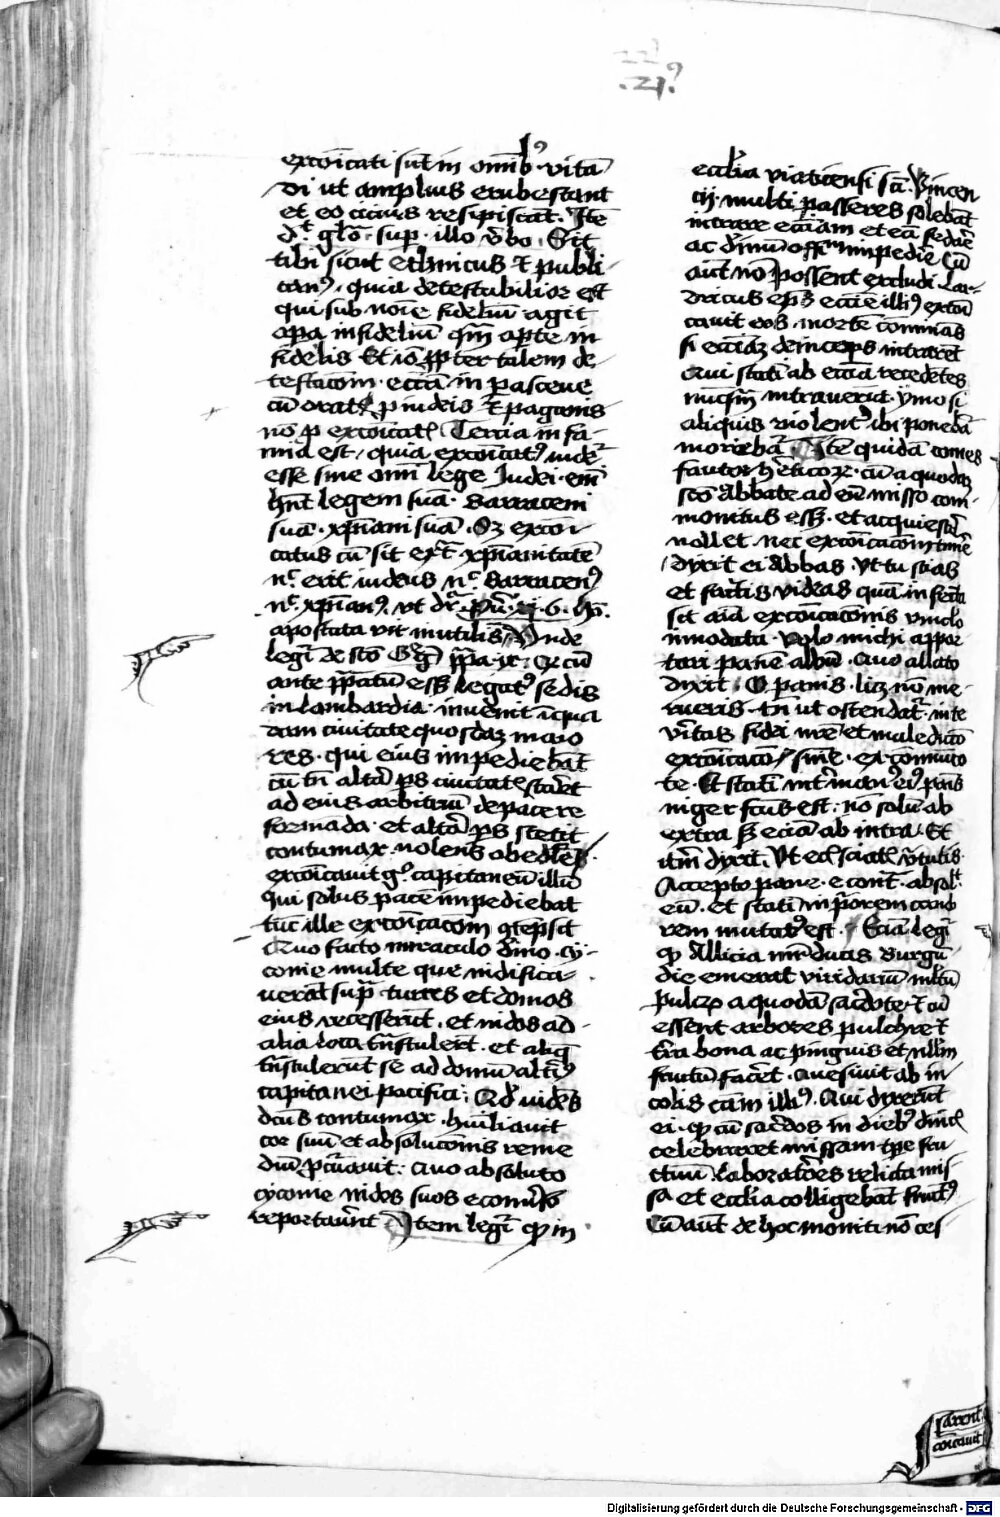 .21.
excōicati sūt in omib9 vitā
di ut amplius erubescant
et eo cicius resipiscāt. Itē
dt glo. sup. illo v̄bo. Sit
tibi sicut ethnicus et publi
can9, quia detestabilior est
qui sub noīe fidelium agit
opa infideliū qm apte in
fidelis Et iō ppter talem de
testacōm. eccīa in pasceue
cū orat p iudeis et paganis
nō p excōicat. Tercia in fa
mia est, quia excōicat9 uidet
esse sine omi lege Judei. em
hnt legem suā. Sarraceni
suā. xpiani suā. Sz excōi
catus cū sit ext xpianitatē
nc erit iudeus nc Sarracen9
nc xpian9. ut dr. pu. vj. G. hō.
apostata vir inutilis. Unde
legi de sco Greg ppa. x. Qz cū
ante ppatū esset legat9 sedis
in lombardia. inuenit in qua
dam ciuitate quosdaz maio
res. qui eius impediebāt
cū tn altā ps ciuitatis staret
ad eius arbitriū de pace re
formāda. et altā ps stetit
contumax. nolens obedire
excōicauit g capitaneū illū
qui solus pacē impediebat
tūc ille excōicacōm 9tēpsit
Quo facto miraculo dīno. cy
conie multe que nidifica
uerāt supra turres et domos
eius recesserūt. et nidos ad
alia loca trāstulerūt. et aliq
trāstulerūt se ad domū alti9
capitanei pacifici. Qd uidēs
dcus contumax. humiliauit
cor suū et absolucōnis reme
diū pcurauit. quo absoluto
cyconie nidos suos econuso
reportauerūt Item legi qp in
ecclīa viaticensi sci. Vincen
cij. multi passeres solebāt
intrare eccīam et eā fedare
ac dīnū offm impedire Cū
aūt nō possent excludi. Lar
dricus eps eccīe illi9 excōi
cauit eos. mortē cōminās
si eccīaz deinceps intrarēt
Qui statī ab eccīa recedētes
nūcqm intrauerūt. ymo si
aliquis violent9 ibi ponebā
moriebāt Item quidā comes
fautor heticorz. cū a quodaz
sco abbate ad eū misso com
monitus esset. et acquiescere
nollet nec excōicacōm timē
dixit ei abbas. ut tu scias
et factis videas quā infecta
sit aīa excōicacōnis vinclo
innodata. volo michi appor
tari panē albū. Quo allato
dixit. O panis. licz non me
rueris. tn ut ostendat in te
v̄itas fidei nre et maledictō
excōicacōis sinē. excōmūico
te. Et statī int man9 ei9 panis
niger fcus est. nō solū ab
extra sz eciā ab intra. Et
itm dixit. Ut ecclīa v̄tutis
Accepto pane. e cont. absol
eū. et statī in p̄orem cando
rem mutat9 est. Eciā legi
qp Allicia mr ducis Burgū
die emerat viridariū mltū
pulcrū a quodā sacdote. et cū
essent arbores pulchre et
tra bona ac pinguis et nllm
fructū facēt. quesiuit ab in
colis cām illi9. Qui dixerūt
ei. qp cū sacdos in dieb9 dnic
celebraret missam tpe fru
ctuū. laboratores relicta mis
sa et ecclīa colligebāt fruct9
Cū aūt de hoc moniti nō ces
sarent
cōicauit